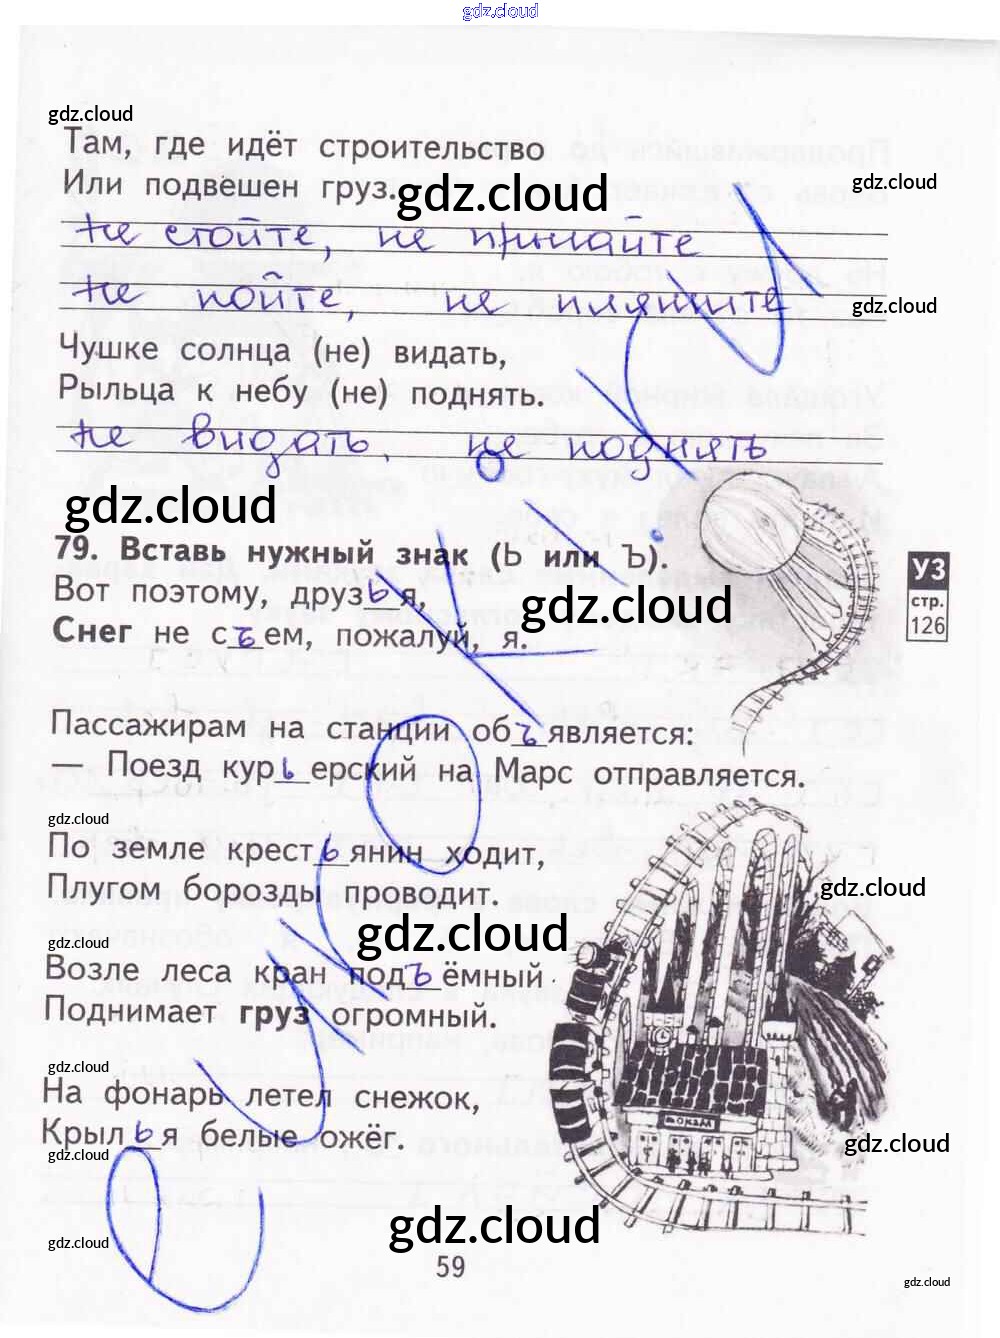 gdz.cloud
gdz.cloud
Там, где идёт строительство
Или подвешен груз.
gdz.cloud
gdz.cloud
не стойте, не прыгайте
не пойте, не пляшите
gdz.cloud
Чушке солнца (не) видать,
Рыльца к небу (не) поднять.
не видать, не поднять
gdz.cloud
79. Вставь нужный знак (Ь или Ъ).
Вот поэтому, друзья,
gdz.cloud
Снег не съем, пожалуй, я.
УЗ
стр.
126
Пассажирам на станции объявляется:
— Поезд курьерский на Марс отправляется.
gdz.cloud
По земле крестьянин ходит,
Плугом борозды проводит.
gdz.cloud
gdz.cloud
gdz.cloud
Возле леса кран подъёмный
Поднимает груз огромный.
gdz.cloud
На фонарь летел снежок,
Крылья белые ожёг.
gdz.cloud
gdz.cloud
gdz.cloud
gdz.cloud
59
gdz.cloud